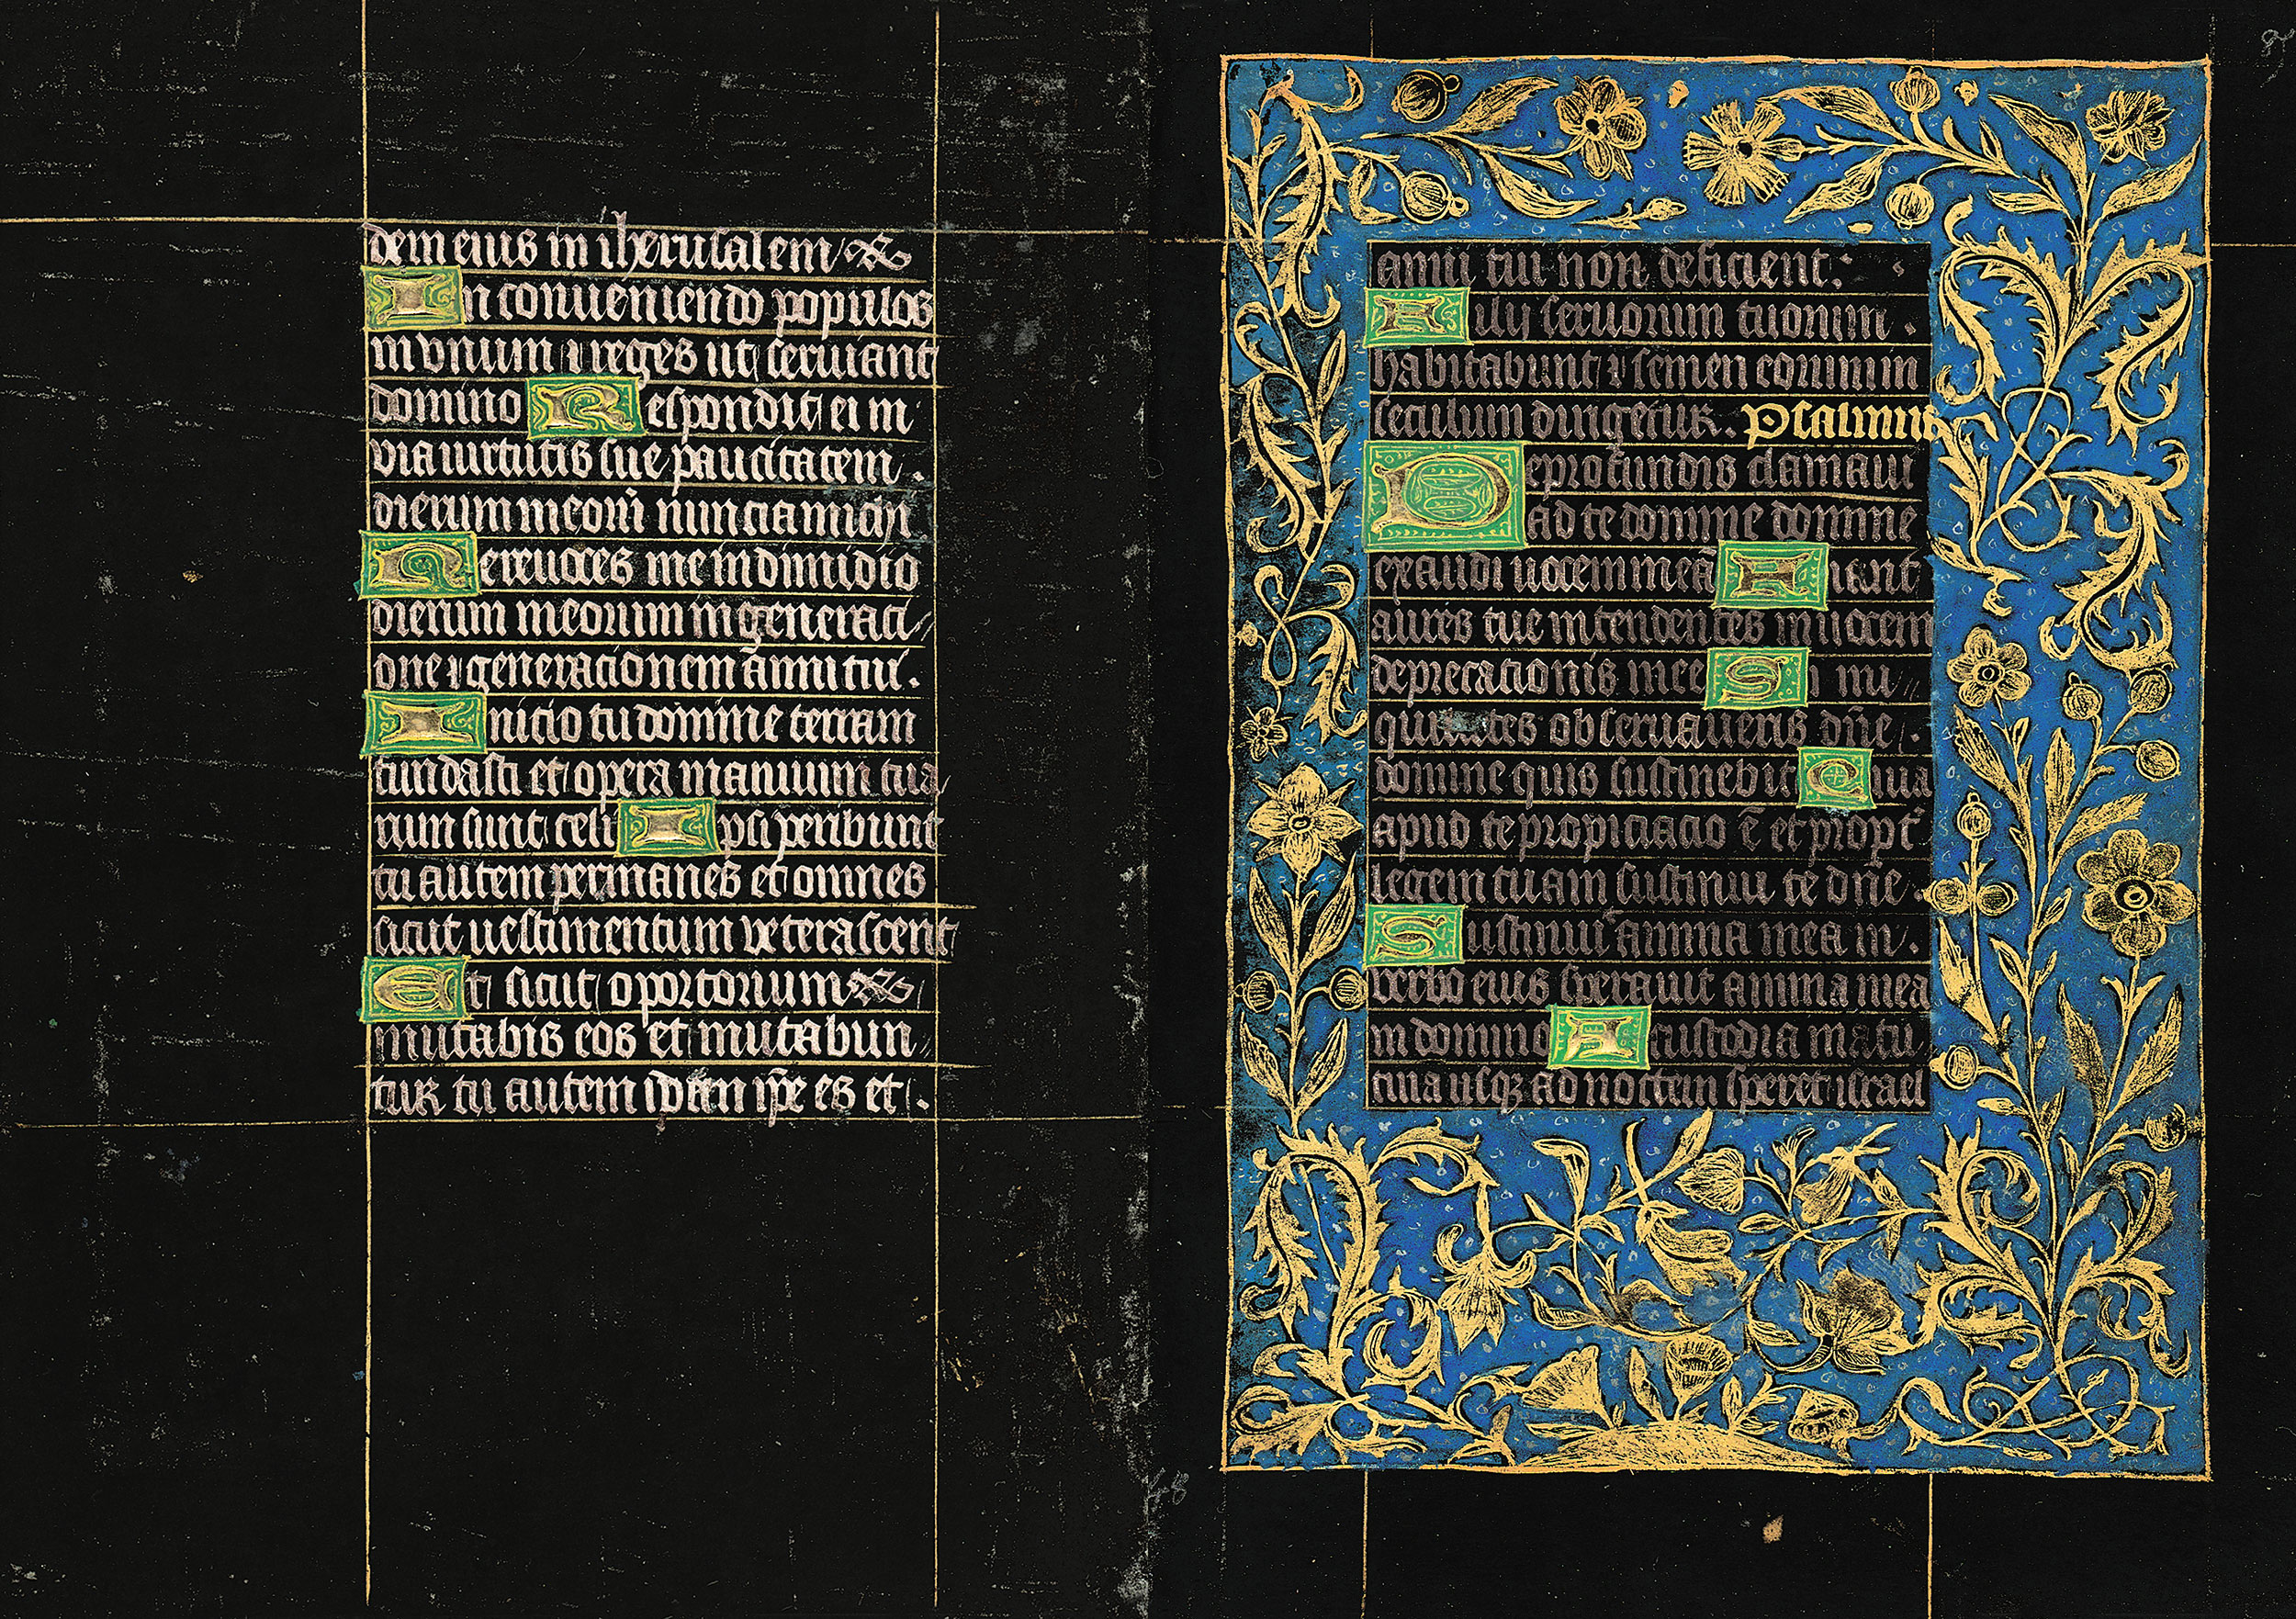 dem eius in iherusalem
In conueniendo populos
in vnum ⁊ reges ut seruiant
domino Respondit ei in
via uirtutis sue paucitatem .
dierum meoꝝ̄ nuncia michi
Ne reuoces me in dimidio
dierum meorum in generaci
one ⁊ generationem anni tui .
Inicio tu domine terram
fundasti et opera manuum tua
rum sunt celi Ipsi peribunt
tu autem permanes et omnes
sicut uestimentum veterascent
Et sicut oportorium
mutabis eos et mutabun
tur tu autem idem ip̄e es et .
anni tui non deficient .
Filij seruorum tuorum .
habitabunt ⁊ semen eorum in
seculum dirigetur . Psalmus
De profundis clamaui
ad te domine domine
exaudi uocem meā Fiant
aures tue intendentes in uocem
deprecationis mee Si ini
quitates obseruaueris dn̄e .
domine quis sustinebit Quia
apud te propiciacio ē et propt̄
legem tuam sustinui te dn̄e .
Sustinuit anima mea in .
verbo eius sperauit anima mea
in domino A custodia matu
tina usqꝫ ad noctem speret israel
48